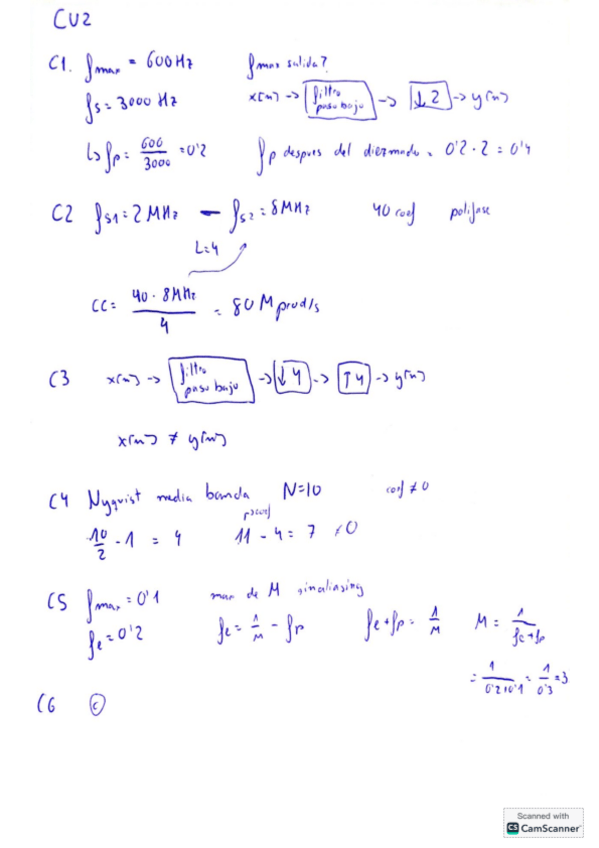 CU2
C1. fmax = 600Hz fmax salida?
fs = 3000 Hz x[n] -> filtro paso bajo -> ↓2 -> y[n]
↳ fp = 600/3000 = 0'2 fp despues del diezmado = 0'2 · 2 = 0'4
C2 fs1 = 2 MHz — fs2 = 8 MHz 40 coef polifase
L=4
CC = 40 · 8MHz / 4 = 80 M prod/s
C3 x[n] -> filtro paso bajo -> ↓4 -> ↑4 -> y[n]
x[n] ≠ y[n]
C4 Nyquist media banda N=10 coef ≠ 0
10/2 - 1 = 4 11 - 4 = 7 ≠0
C5 fmax = 0'1 max de M sin aliasing
fe = 0'2 fe = 1/M - fp fe + fp = 1/M M = 1/(fe + fp)
= 1/(0'2+0'1) = 1/0'3 = 3
C6 c
Scanned with
CS CamScanner